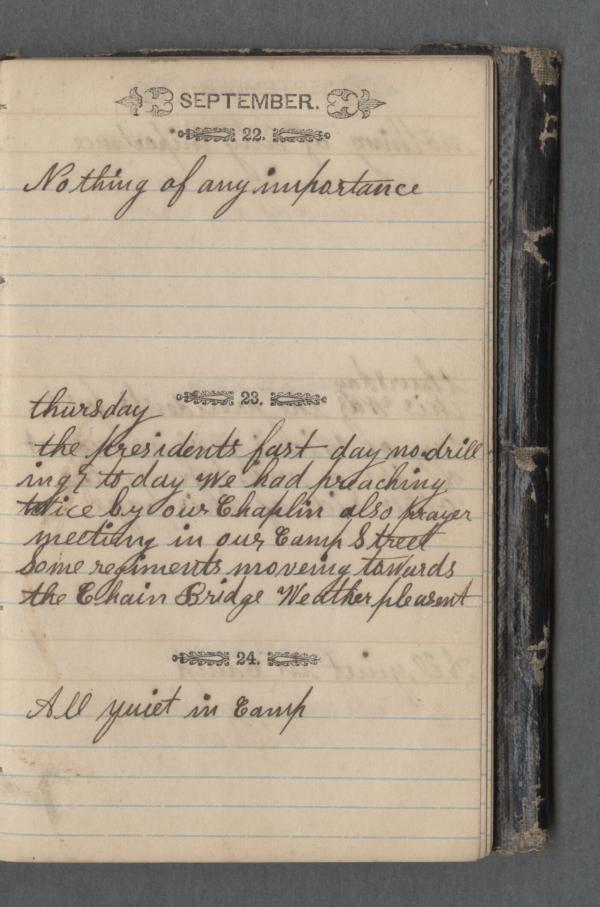 SEPTEMBER.
22.
Nothing of any importance
23.
thursday
the presidents fast day no drill
ing to day We had preaching
twice by our Chaplin also prayer
meeting in our Camp Street
Some regiments moveing towards
the Chain Bridge Weather pleasent
24.
All quiet in Camp